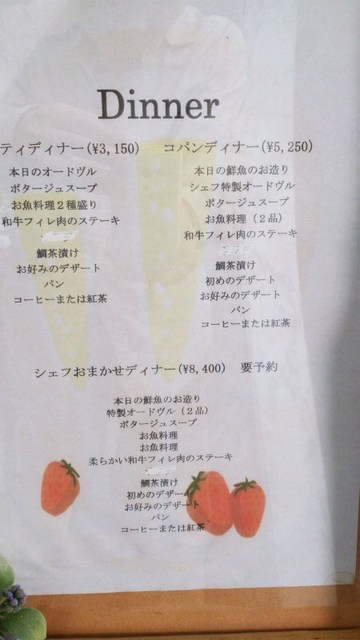 Dinner
ティディナー(¥3,150)
本日のオードヴル
ポタージュスープ
お魚料理２種盛り
和牛フィレ肉のステーキ
鯛茶漬け
お好みのデザート
パン
コーヒーまたは紅茶
コパンディナー(¥5,250)
本日の鮮魚のお造り
シェフ特製オードヴル
ポタージュスープ
お魚料理（２品）
和牛フィレ肉のステーキ
鯛茶漬け
初めのデザート
お好みのデザート
パン
コーヒーまたは紅茶
シェフおまかせディナー(¥8,400) 要予約
本日の鮮魚のお造り
特製オードヴル（２品）
ポタージュスープ
お魚料理
お魚料理
柔らかい和牛フィレ肉のステーキ
鯛茶漬け
初めのデザート
お好みのデザート
パン
コーヒーまたは紅茶